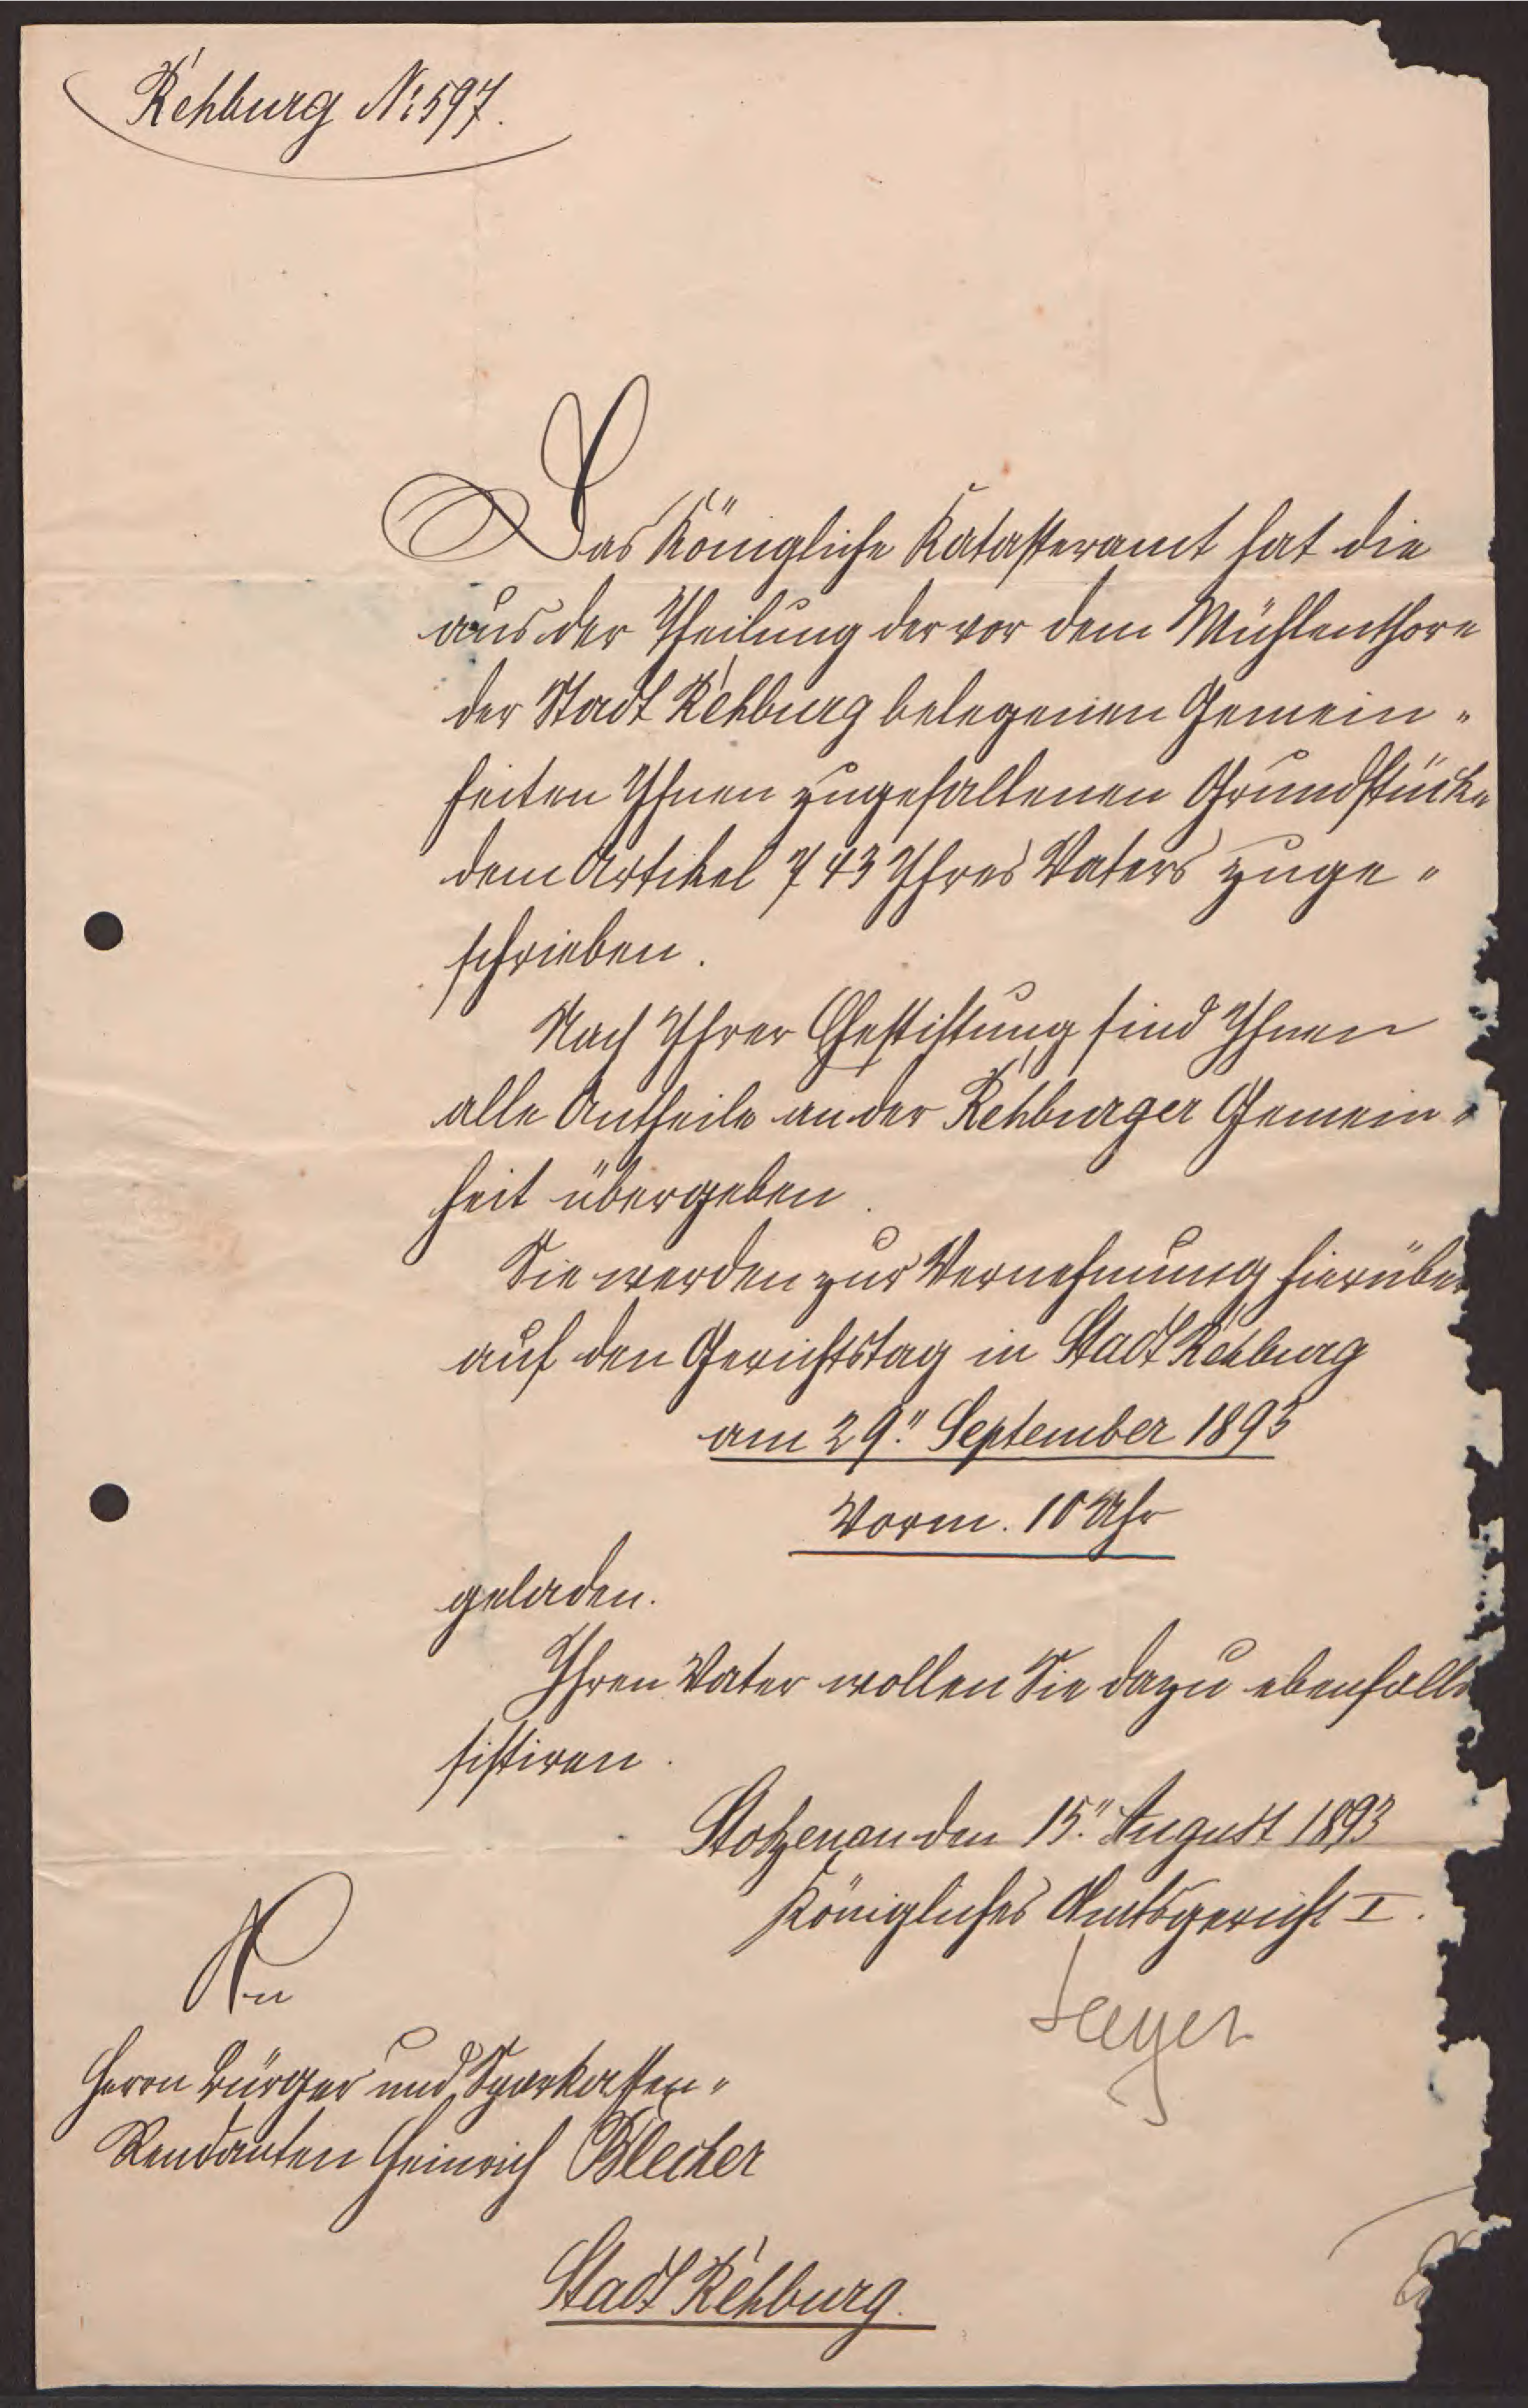 Rehburg No 597.
Das Königliche Katasteramt hat die
aus der Theilung der vor dem Mühlenthore
der Stadt Rehburg belegenen Gemein-
heiten Ihnen zugefallenen Grundstücke
dem Artikel 743 Ihres Vaters zuge-
schrieben.
Nach Ihrer Ehestiftung sind Ihnen
alle Antheile an der Rehburger Gemein-
heit übergeben.
Sie werden zur Vernehmung hierüber
auf den Gerichtstag in Stadt Rehburg
am 29. September 1893
Vorm. 10 Uhr
geladen.
Ihren Vater wollen Sie dazu ebenfalls
sistiren.
Stolzenau den 15. August 1893
Königliches Amtsgericht I.
An
Herrn Bürger und Sparkassen-
Rendanten Heinrich Blecher
Stadt Rehburg.